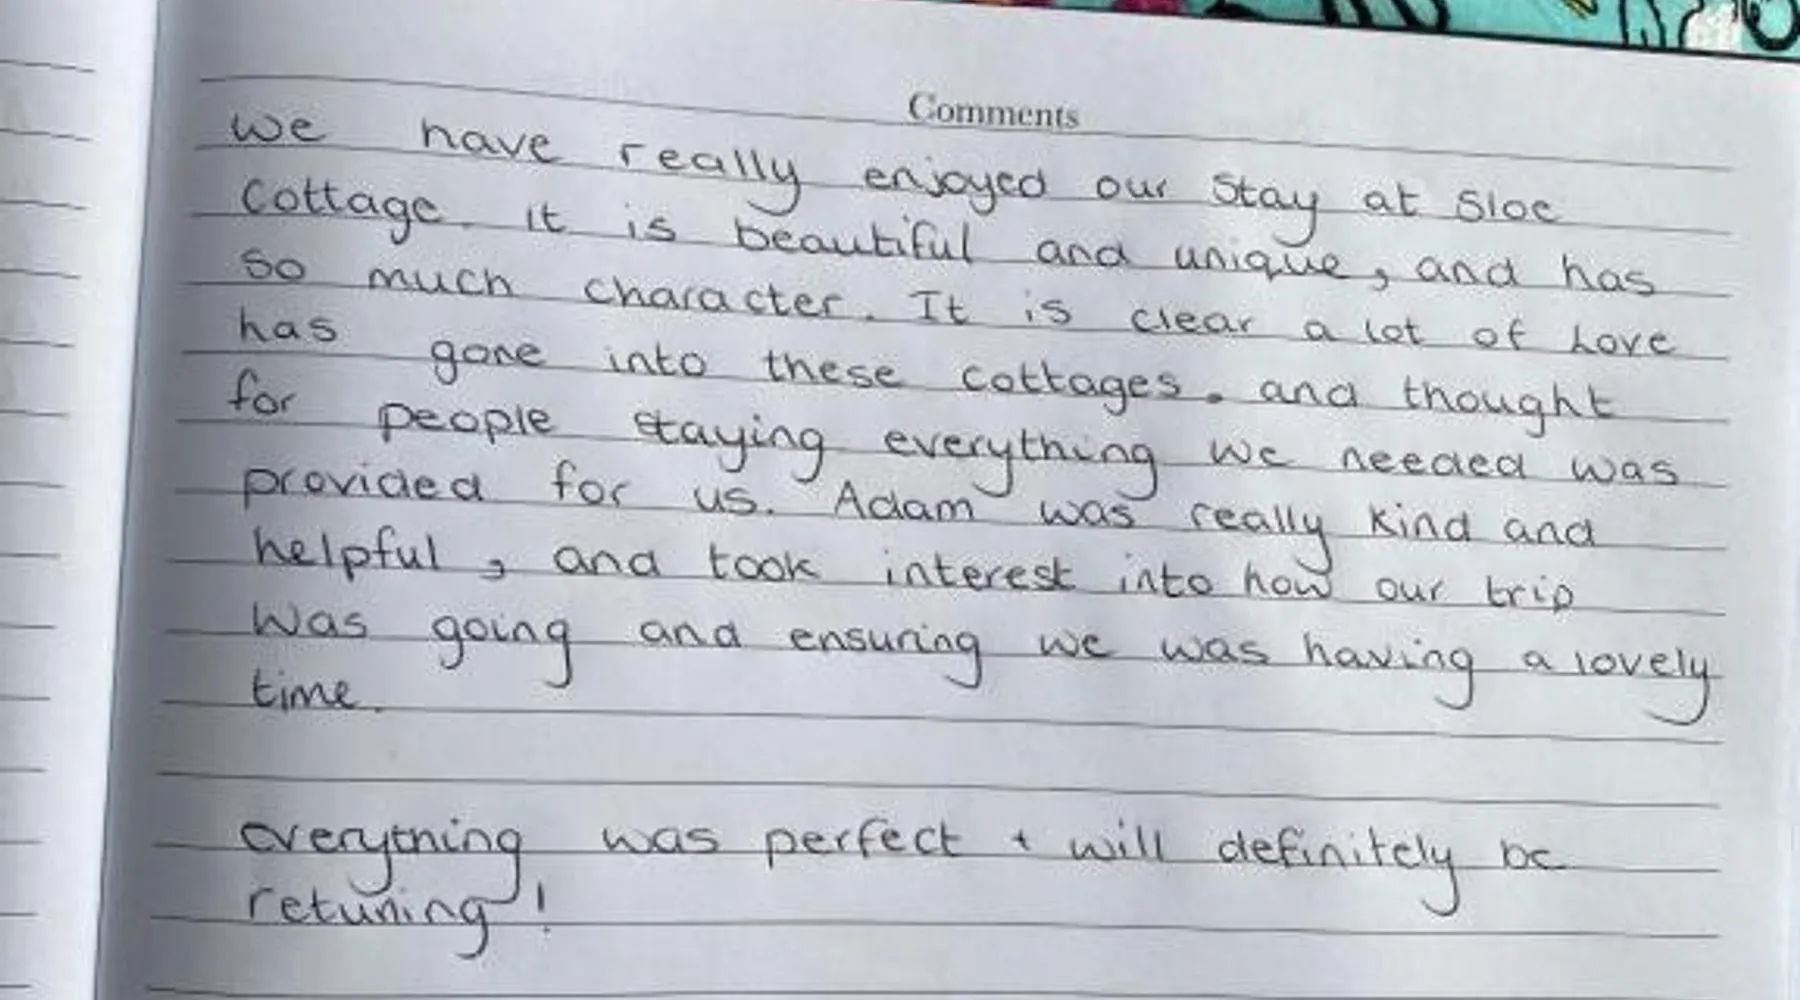 Comments
We have really enjoyed our stay at Sloe
Cottage. It is beautiful and unique, and has
so much character. It is clear a lot of love
has gone into these cottages. and thought
for people staying everything we needed was
provided for us. Adam was really kind and
helpful, and took interest into how our trip
was going and ensuring we was having a lovely
time.
everything was perfect + will definitely be
retuning!